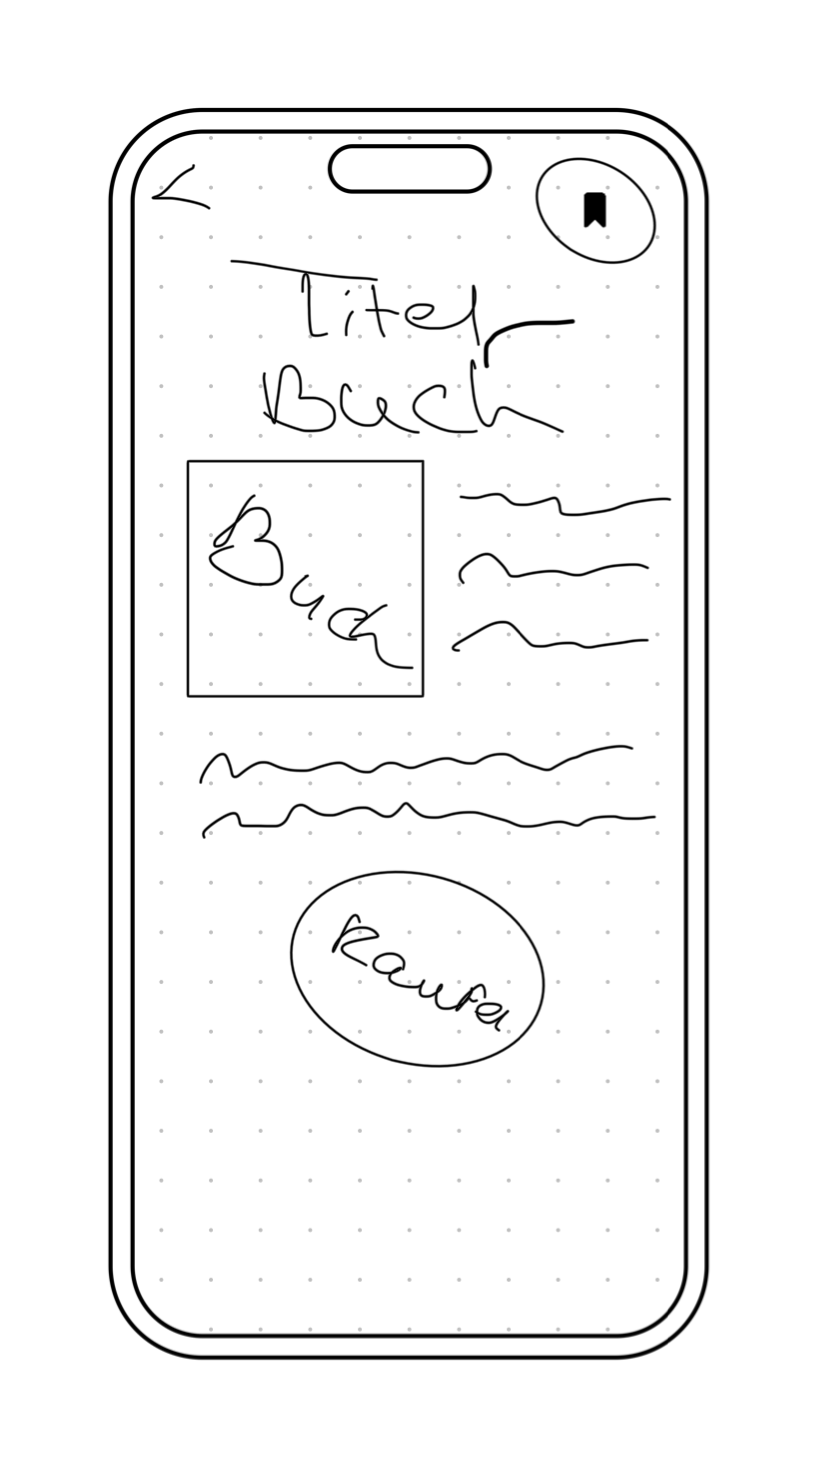 Titel
Buch
Buch
Kaufen